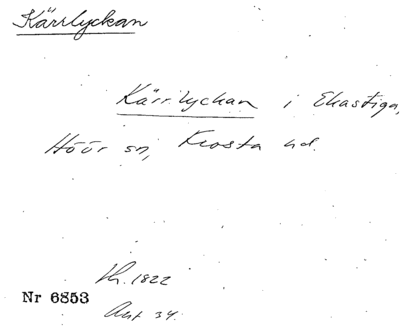 Kärrlyckan
Kärrlyckan i Ekastiga,
Höör sn, Frosta hd.
Nr 6853
Akt 34.